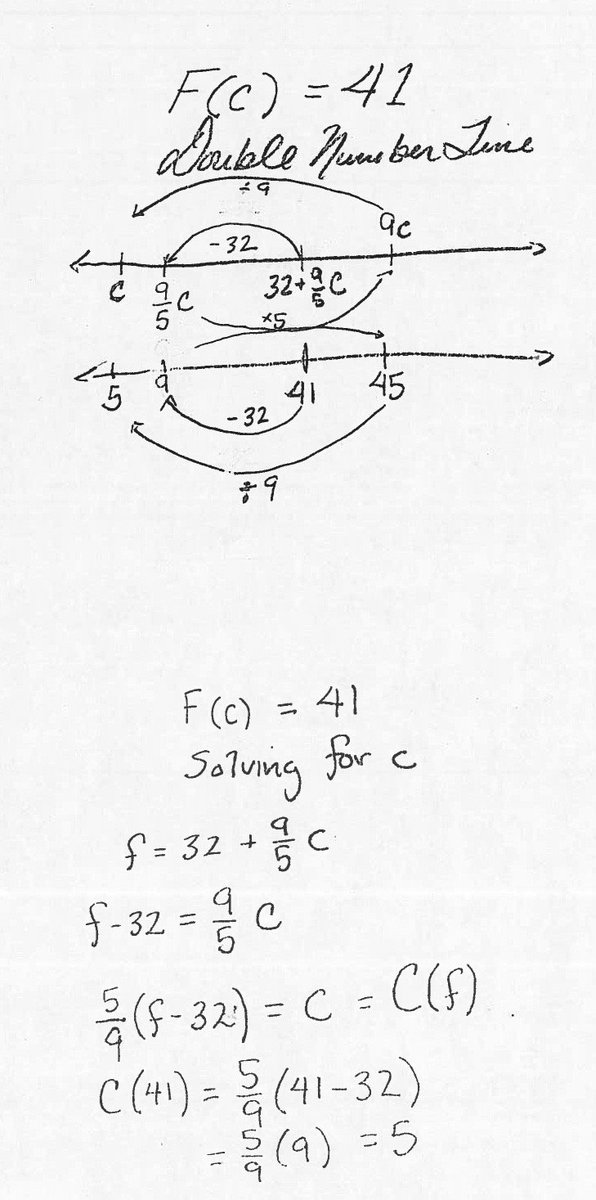 F(C) = 41
Double Number Line
÷9
9C
-32
C
9/5 C
32+9/5 C
×5
5
9
41
45
-32
÷9
F(C) = 41
Solving for C
f = 32 + 9/5 C
f-32 = 9/5 C
5/9(f-32) = C = C(f)
C(41) = 5/9(41-32)
= 5/9(9) = 5